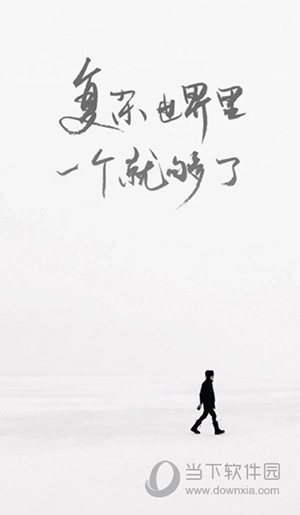 复杂世界里
一个就够了
当下软件园
www.downxia.com